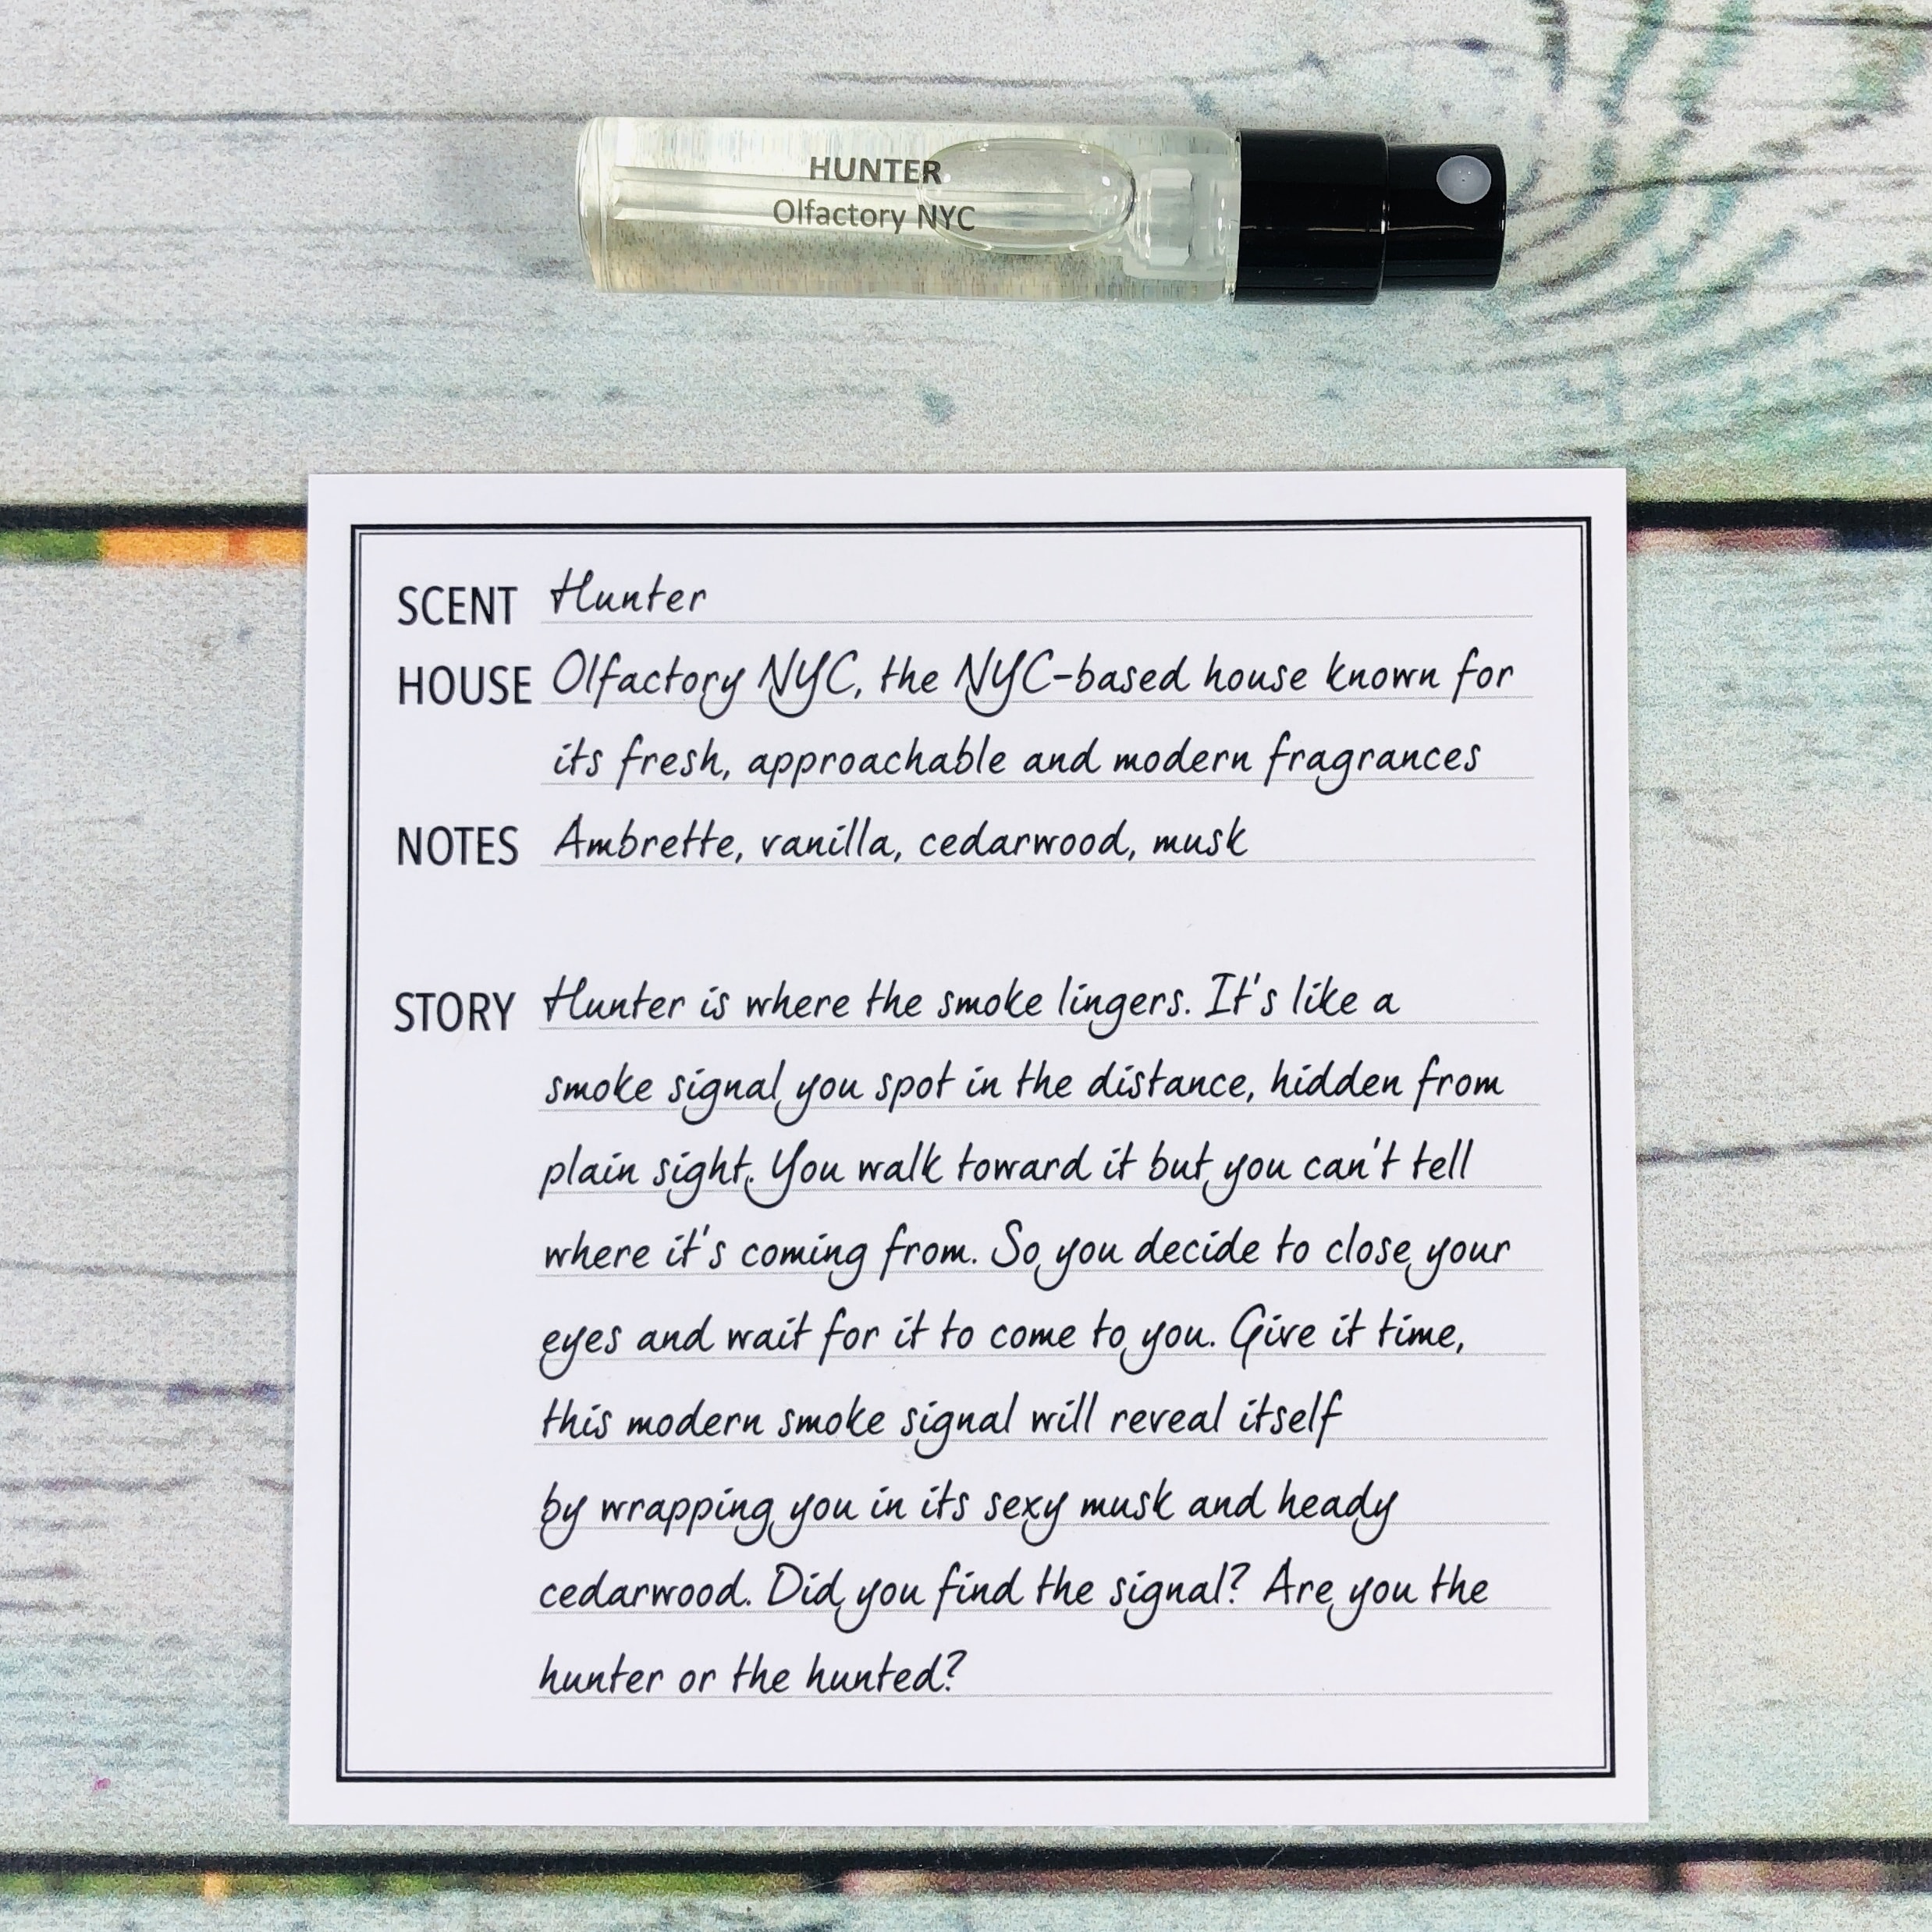 HUNTER
Olfactory NYC
SCENT Hunter
HOUSE Olfactory NYC, the NYC-based house known for
its fresh, approachable and modern fragrances
NOTES Ambrette, vanilla, cedarwood, musk
STORY Hunter is where the smoke lingers. It's like a
smoke signal you spot in the distance, hidden from
plain sight. You walk toward it but you can't tell
where it's coming from. So you decide to close your
eyes and wait for it to come to you. Give it time,
this modern smoke signal will reveal itself
by wrapping you in its sexy musk and heady
cedarwood. Did you find the signal? Are you the
hunter or the hunted?